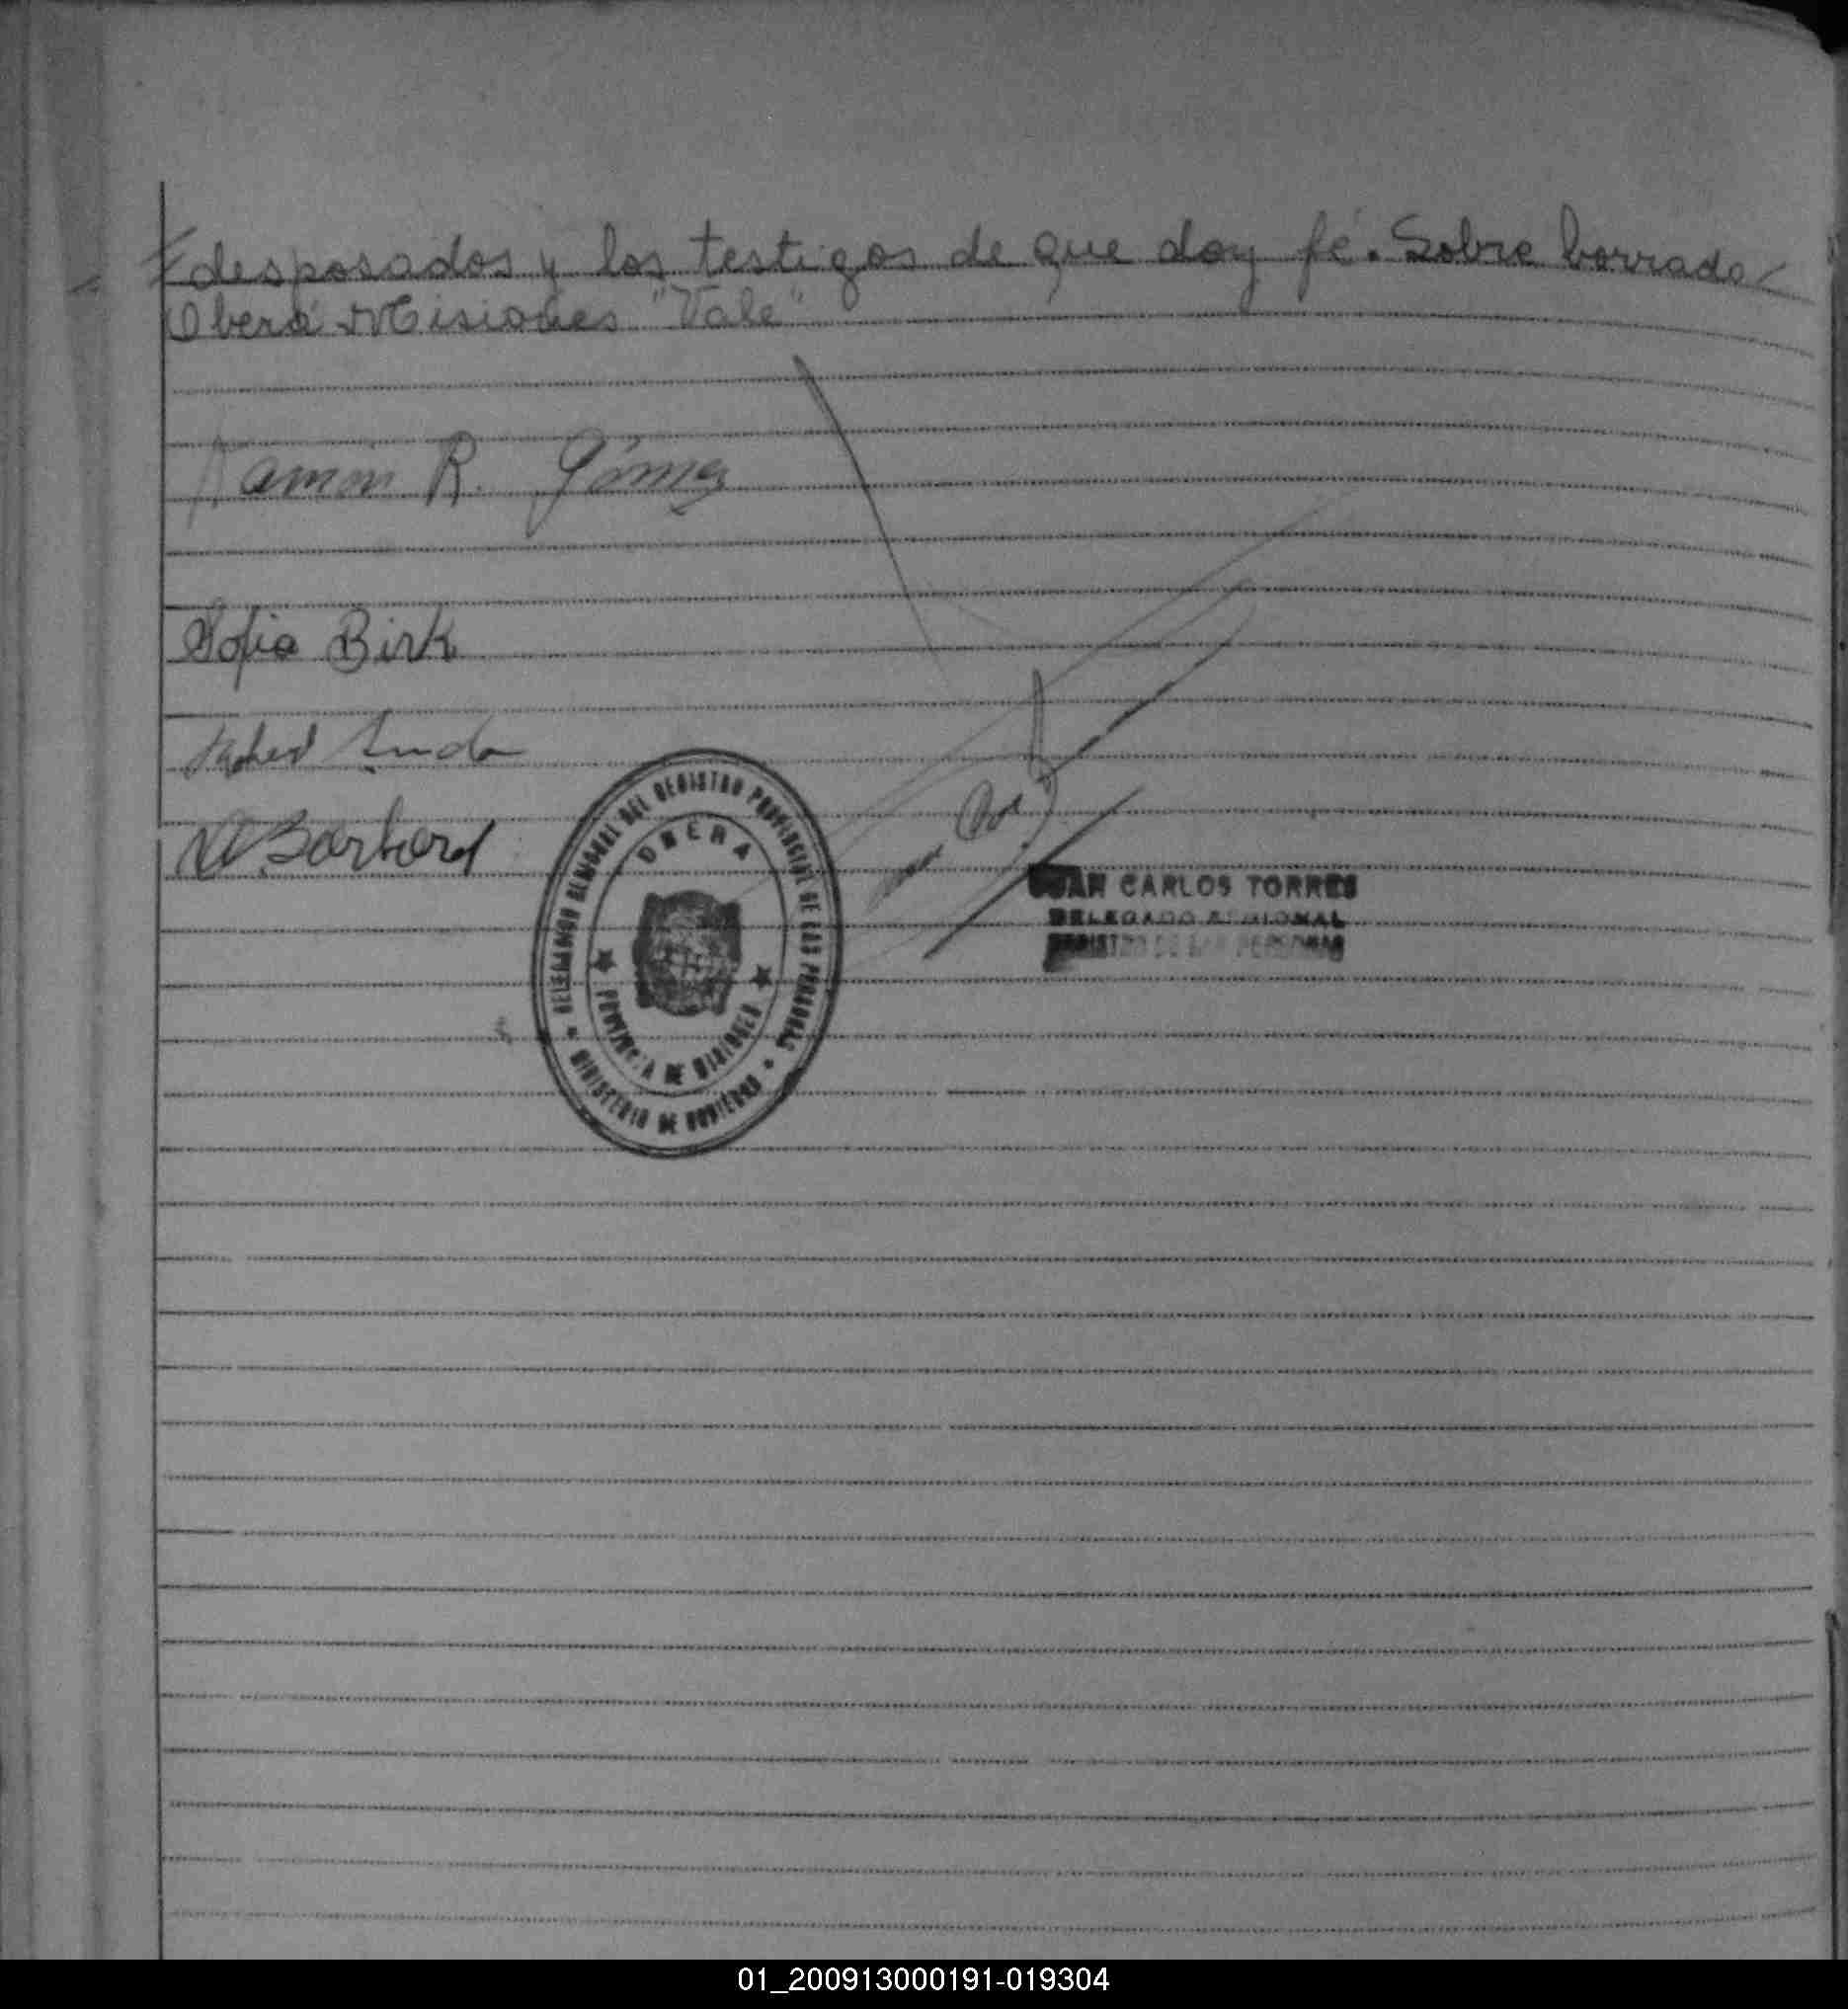 desposados y los testigos de que doy fé. Sobre borrado
Oberá Misiones "Vale"
Ramón R. Gómez
Sofia Birk
DELEGACION REGIONAL DEL REGISTRO PROVINCIAL DE LAS PERSONAS
OBERA
PROVINCIA DE MISIONES
MINISTERIO DE GOBIERNO
JUAN CARLOS TORRES
DELEGADO REGIONAL
REGISTRO DE LAS PERSONAS
01_200913000191-019304